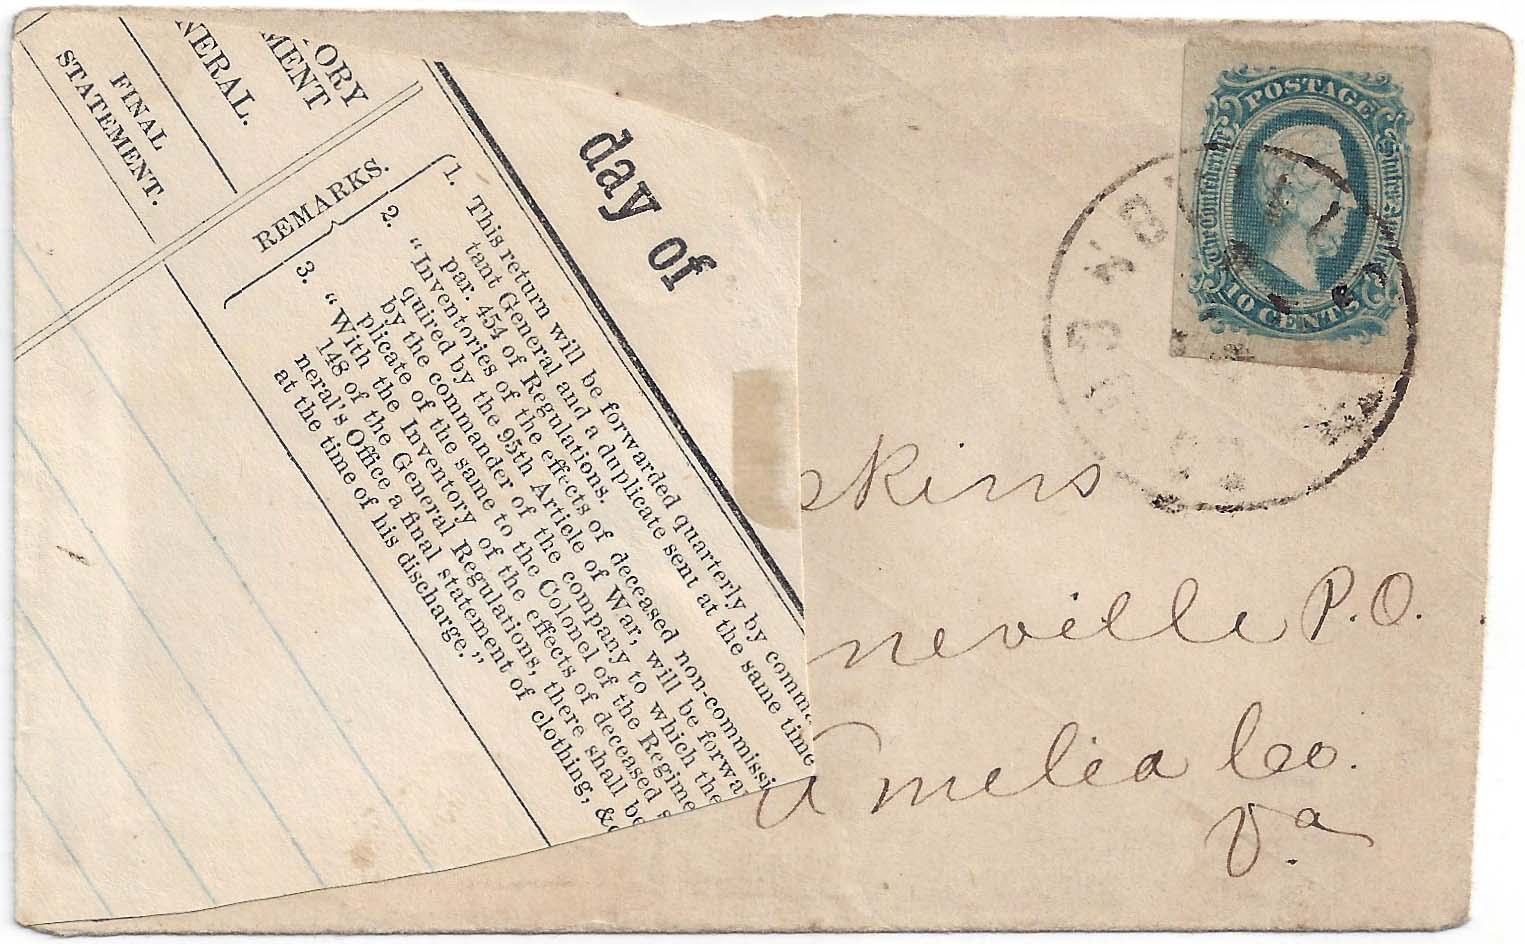 ORY
MENT
NERAL.
FINAL
STATEMENT.
REMARKS.
day of
1. This return will be forwarded quarterly by comm
tant General and a duplicate sent at the same time
par. 454 of Regulations.
2. "Inventories of the effects of deceased non-commissi
quired by the 95th Article of War, will be forwar
by the commander of the company to which the
plicate of the same to the Colonel of the Regime
3. "With the Inventory of the effects of deceased s
148 of the General Regulations, there shall be
neral's Office a final statement of clothing, &c
at the time of his discharge."
POSTAGE
The Confederate
States of America
10 CENTS
skins
neville P.O.
Amelia Co.
Va